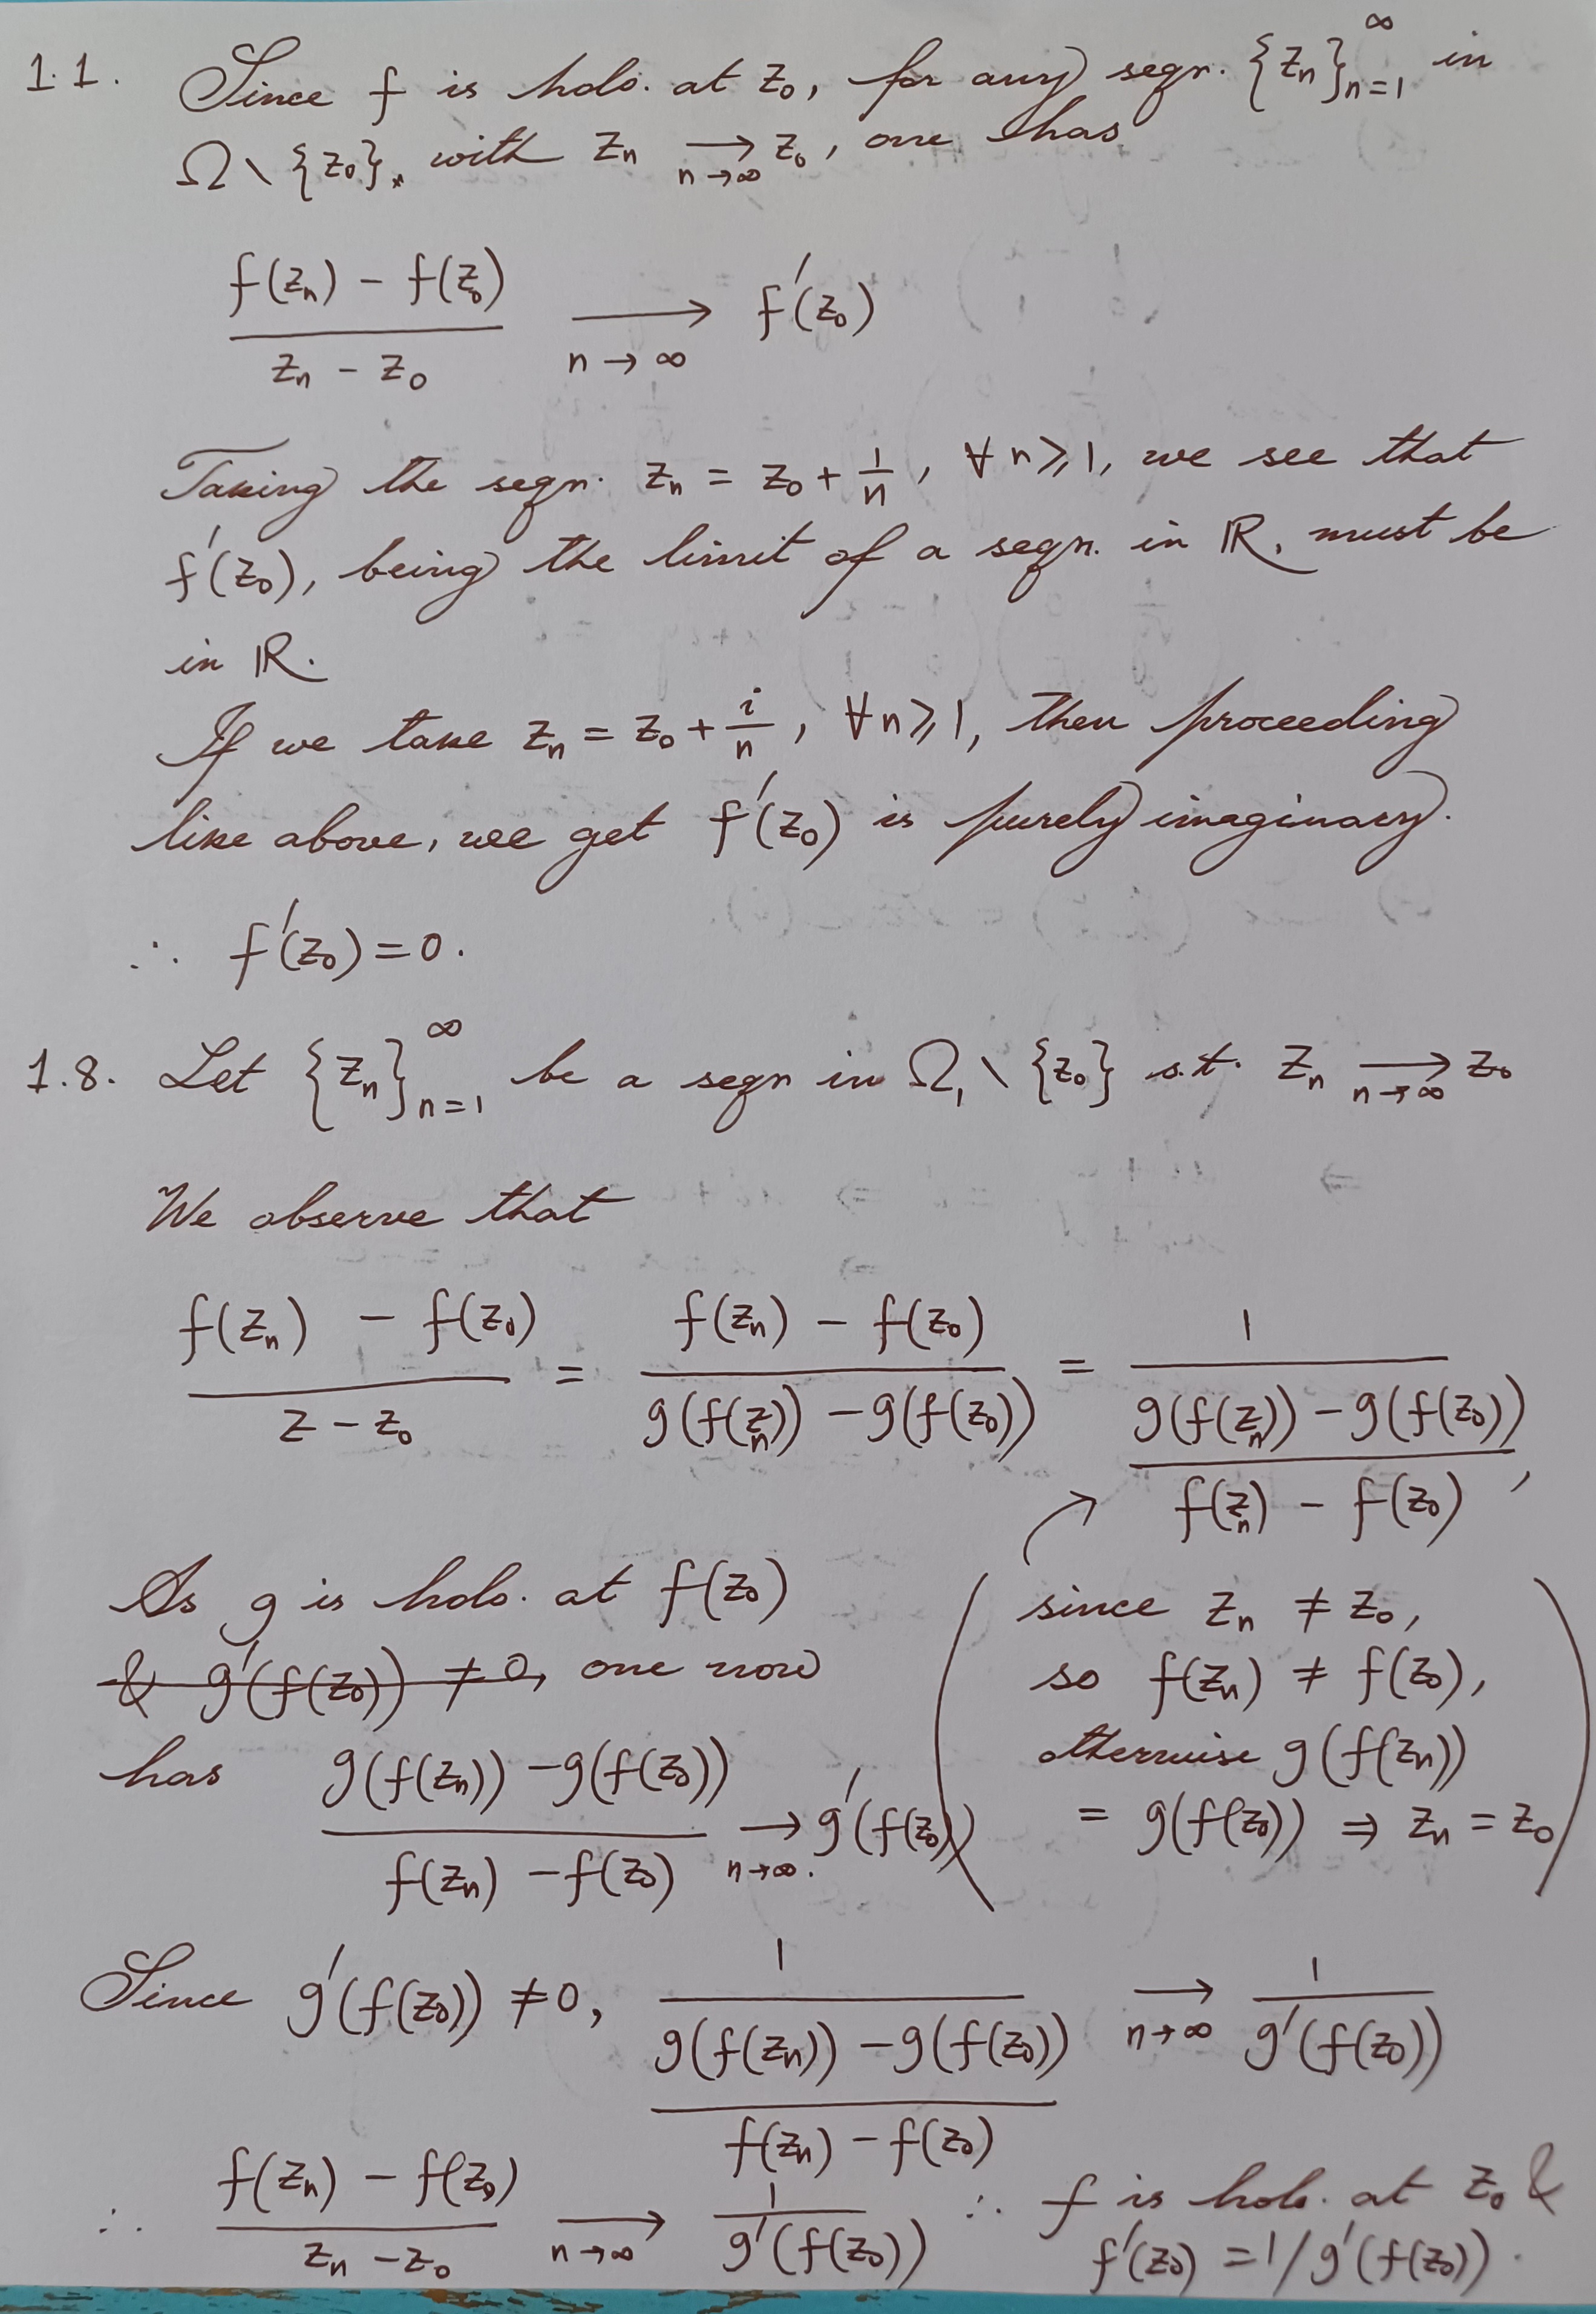 1.1. Since f is holo. at z₀, for any seqn. {zₙ}ₙ₌₁^∞ in
Ω \ {z₀}, with zₙ →_{n→∞} z₀, one has
(f(zₙ) − f(z₀))/(zₙ − z₀) →_{n→∞} f′(z₀)
Taking the seqn. zₙ = z₀ + 1/n, ∀ n ≥ 1, we see that
f′(z₀), being the limit of a seqn. in ℝ, must be
in ℝ.
If we take zₙ = z₀ + i/n, ∀ n ≥ 1, then proceeding
like above, we get f′(z₀) is purely imaginary.
∴ f′(z₀) = 0.
1.8. Let {zₙ}ₙ₌₁^∞ be a seqn in Ω₁ \ {z₀} s.t. zₙ →_{n→∞} z₀
We observe that
(f(zₙ) − f(z₀))/(z − z₀) = (f(zₙ) − f(z₀))/(g(f(zₙ)) − g(f(z₀))) = 1/((g(f(zₙ)) − g(f(z₀)))/(f(zₙ) − f(z₀))),
As g is holo. at f(z₀)
& g′(f(z₀)) ≠ 0, one now
has (g(f(zₙ)) − g(f(z₀)))/(f(zₙ) − f(z₀)) →_{n→∞} g′(f(z₀))
(since zₙ ≠ z₀,
so f(zₙ) ≠ f(z₀),
otherwise g(f(zₙ))
= g(f(z₀)) ⇒ zₙ = z₀)
Since g′(f(z₀)) ≠ 0, 1/((g(f(zₙ)) − g(f(z₀)))/(f(zₙ) − f(z₀))) →_{n→∞} 1/g′(f(z₀))
∴ (f(zₙ) − f(z₀))/(zₙ − z₀) →_{n→∞} 1/g′(f(z₀)) ∴ f is holo. at z₀ &
f′(z₀) = 1/g′(f(z₀)).